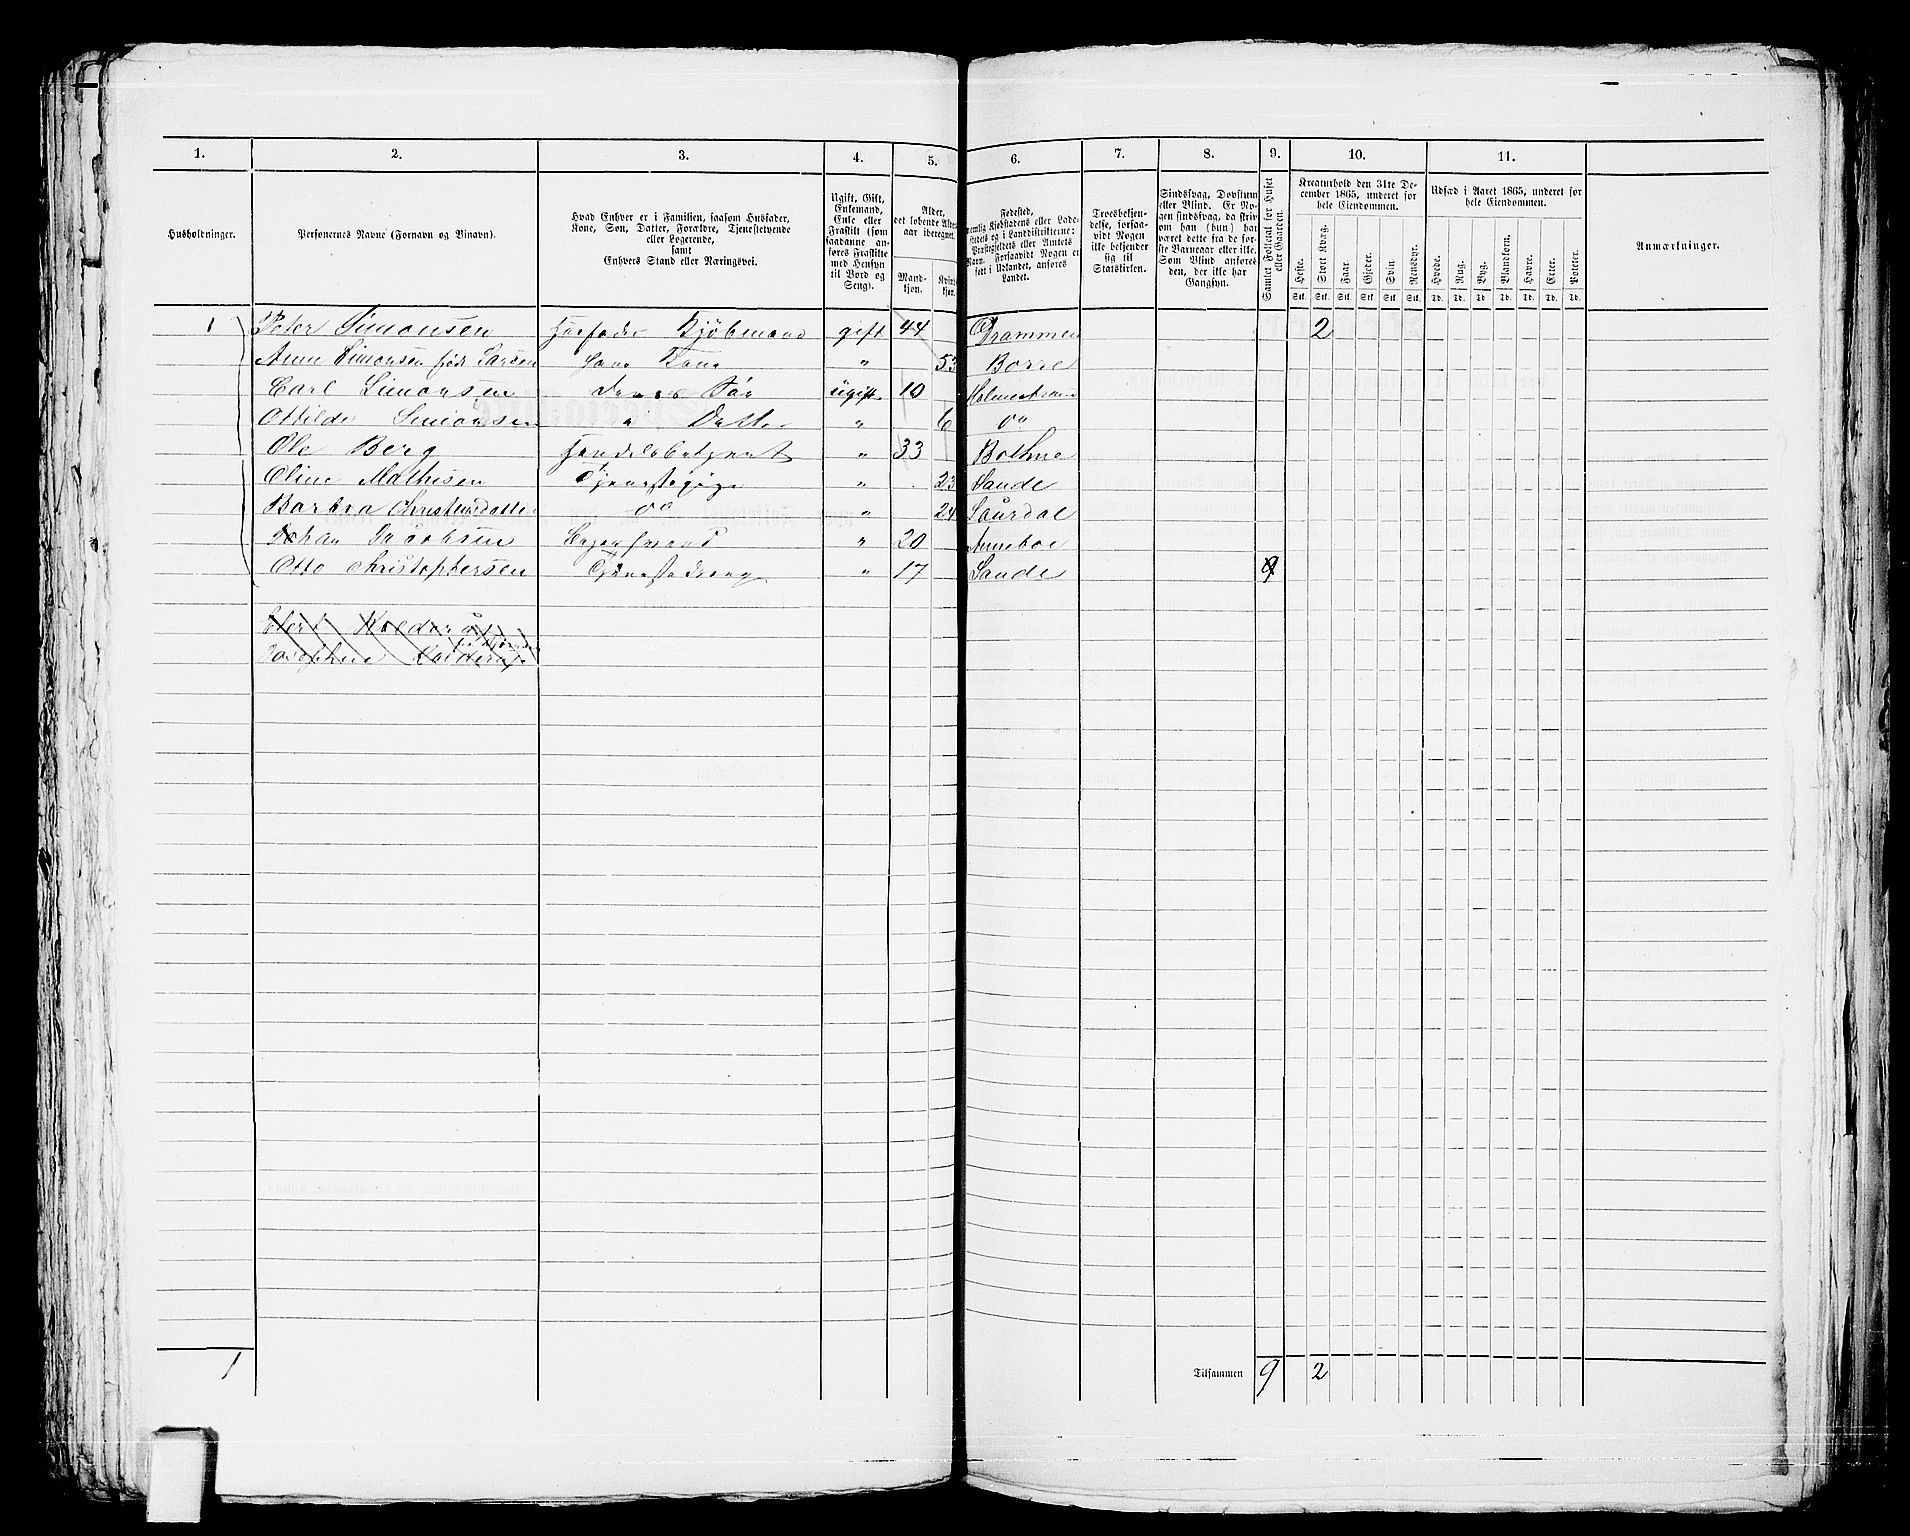 1. 2. 3. 4. 5. 6. 7. 8. 9. 10. 11.
Husholdninger.
Personernes Navne (Fornavn og Binavn).
Hvad Enhver er i Familien, saasom Husfader,
Kone, Søn, Datter, Forældre, Tjenestetyende
eller Logerende,
samt
Enhvers Stand eller Næringsvei.
Ugift, Gift,
Enkemand,
Enke eller
Fraskilt (som
saadanne an-
føres Fraskilte
med Hensyn
til Bord og
Seng).
Alder,
det løbende Alders-
aar iberegnet.
Mand-
kjøn.
Kvinde-
kjøn.
Fødested,
nemlig Kjøbstadens eller Lade-
stedets og i Landdistrikterne:
Præstegjeldets eller Amtets
Navn. Forsaavidt Nogen er
født i Udlandet, anføres
Landet.
Troesbekjen-
delse, forsaa-
vidt Nogen
ikke bekjender
sig til
Statskirken.
Sindssvag, Døvstum
eller Blind. Er No-
gen sindssvag, da skriv
om han (hun) har
været dette fra de før-
ste Barneaar eller ikke.
Som Blind anføres
den, der ikke har
Gangsyn.
Samlet Folketal for Huset
eller Gaarden.
Kreaturhold den 31te De-
cember 1865, underet for
hele Eiendommen.
Heste. Stort Kvæg. Faar. Gjeder. Svin. Rensdyr.
Stk. Stk. Stk. Stk. Stk. Stk.
Udsæd i Aaret 1865, underet for
hele Eiendommen.
Hvede. Rug. Byg. Blandkorn. Havre. Erter. Poteter.
Td. Td. Td. Td. Td. Td. Td.
Anmærkninger.
1 Peter Simonsen Husfader Kjøbmand gift 44 Drammen 2
Anne Simonsen født Larsen hans Kone " 53 Borre
Carl Simonsen Deres Søn ugift 10 Holmestrand
Ottilde Simonsen " Datter " 6 do
Ole Berg Handelsbetjent " 33 Bothne
Oline Mathisen Tjenestepige " 23 Sande
Barbra Christensdatter do " 24
Johan Jacobsen " 20
Otto Christophersen Tjenestedreng " 17 Sande 9
1 Tilsammen 9 2